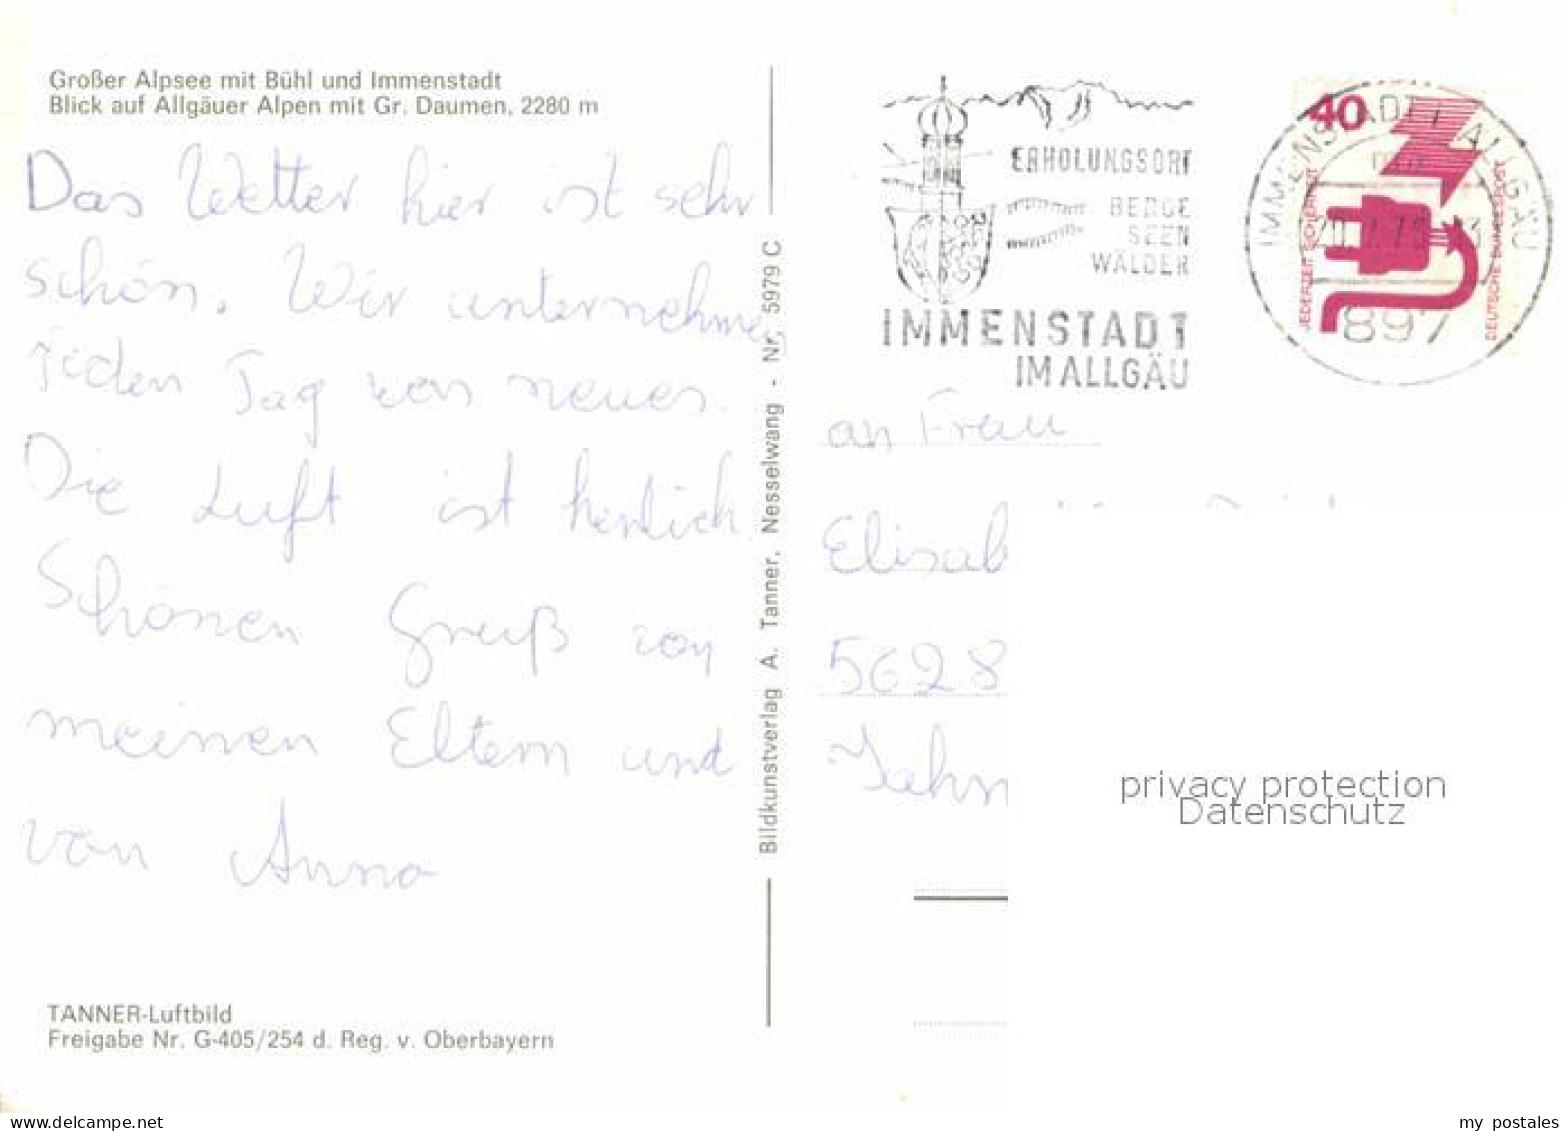 Großer Alpsee mit Bühl und Immenstadt
Blick auf Allgäuer Alpen mit Gr. Daumen, 2280 m
Das Wetter hier ist sehr
schön. Wir unternehmen
jeden Tag von neues.
Die Luft ist herlich.
Schönen Gruß von
meinen Eltern und
von Anna
TANNER-Luftbild
Freigabe Nr. G-405/254 d. Reg. v. Oberbayern
Bildkunstverlag A. Tanner, Nesselwang - Nr. 5979 C
ERHOLUNGSORT
BERGE
SEEN
WÄLDER
IMMENSTADT
IM ALLGÄU
40
JEDERZEIT SICHERHEIT
DEUTSCHE BUNDESPOST
IMMENSTADT I. ALLGÄU
897
an Frau
Elisab
5628
Jahn
privacy protection
Datenschutz
my postales